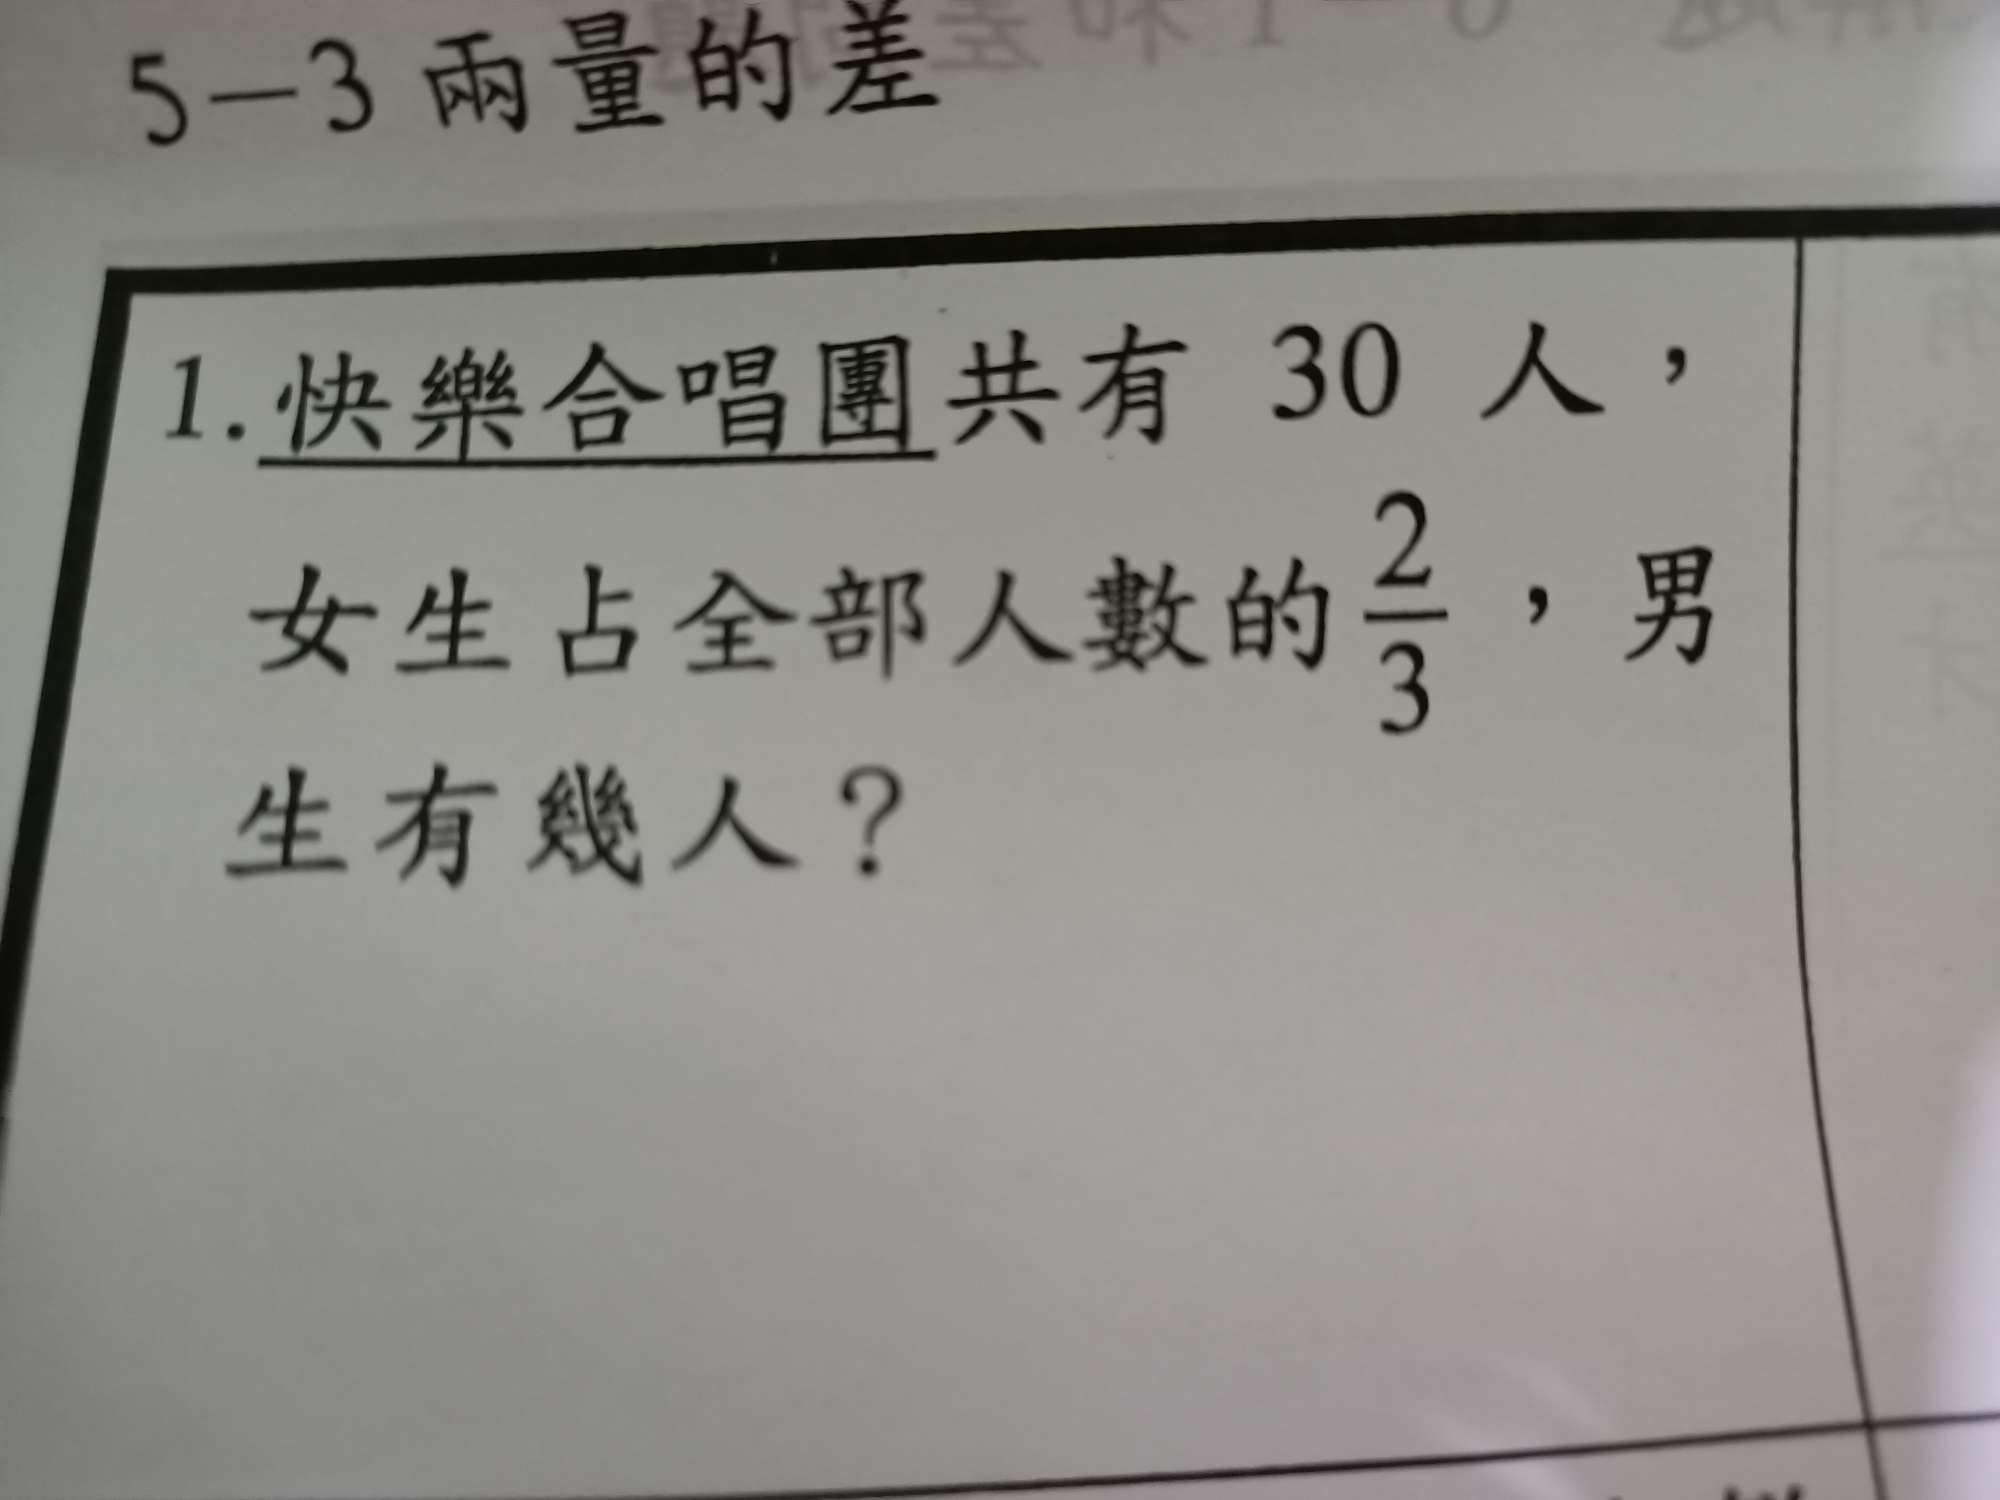 5－3 兩量的差
1. 快樂合唱團共有 30 人，
女生占全部人數的2/3，男
生有幾人？